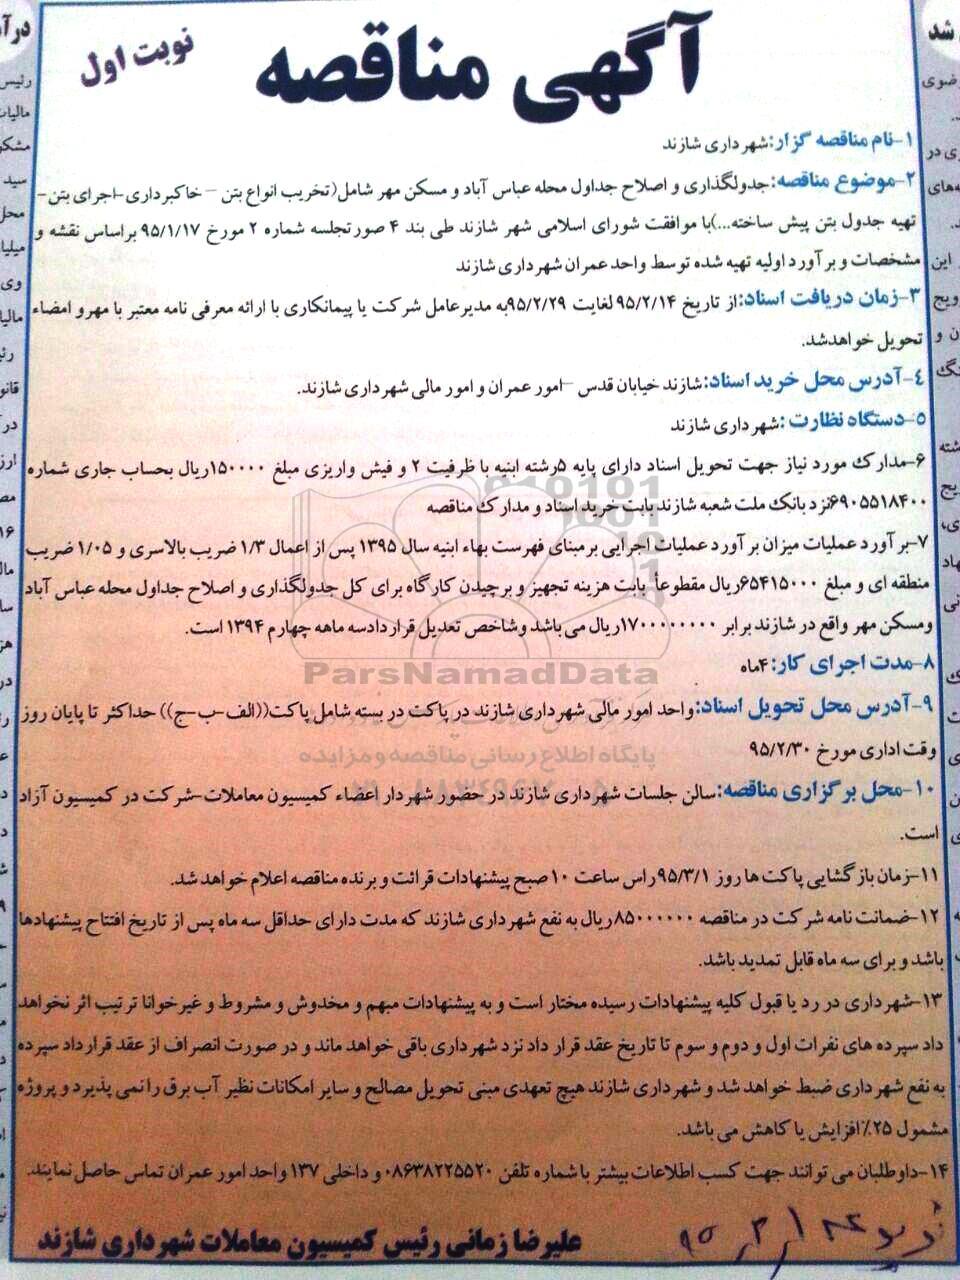 آگهی مناقصه
نوبت اول
۱-نام مناقصه گزار:شهرداری شازند
۲-موضوع مناقصه:جدولگذاری و اصلاح جداول محله عباس آباد و مسکن مهر شامل(تخریب انواع بتن – خاکبرداری-اجرای بتن-
تهیه جدول بتن پیش ساخته...)با موافقت شورای اسلامی شهر شازند طی بند ۴ صورتجلسه شماره ۲ مورخ ۹۵/۱/۱۷ براساس نقشه و
مشخصات و برآورد اولیه تهیه شده توسط واحد عمران شهرداری شازند
۳-زمان دریافت اسناد:از تاریخ ۹۵/۲/۱۴ لغایت ۹۵/۲/۲۹به مدیرعامل شرکت یا پیمانکاری با ارائه معرفی نامه معتبر با مهرو امضاء
تحویل خواهدشد.
۴-آدرس محل خرید اسناد:شازند خیابان قدس –امور عمران و امور مالی شهرداری شازند.
۵-دستگاه نظارت :شهرداری شازند
۶-مدارک مورد نیاز جهت تحویل اسناد دارای پایه ۵رشته ابنیه با ظرفیت ۲ و فیش واریزی مبلغ ۱۵۰۰۰۰ریال بحساب جاری شماره
۶۹۰۵۵۱۸۴۰۰نزد بانک ملت شعبه شازند بابت خرید اسناد و مدارک مناقصه
۷-برآورد عملیات میزان برآورد عملیات اجرایی برمبنای فهرست بهاء ابنیه سال ۱۳۹۵ پس از اعمال ۱/۳ ضریب بالاسری و ۱/۰۵ ضریب
منطقه ای و مبلغ ۶۵۴۱۵۰۰۰ریال مقطوعأ بابت هزینه تجهیز و برچیدن کارگاه برای کل جدولگذاری و اصلاح جداول محله عباس آباد
ومسکن مهر واقع در شازند برابر ۱۷۰۰۰۰۰۰۰۰ریال می باشد وشاخص تعدیل قراردادسه ماهه چهارم ۱۳۹۴ است.
۸-مدت اجرای کار: ۴ماه
۹-آدرس محل تحویل اسناد:واحد امور مالی شهرداری شازند در پاکت در بسته شامل پاکت((الف-ب-ج)) حداکثر تا پایان روز
وقت اداری مورخ ۹۵/۲/۳۰
۱۰-محل برگزاری مناقصه:سالن جلسات شهرداری شازند در حضور شهردار اعضاء کمیسیون معاملات-شرکت در کمیسیون آزاد
است.
۱۱-زمان بازگشایی پاکت ها روز ۹۵/۳/۱راس ساعت ۱۰ صبح پیشنهادات قرائت و برنده مناقصه اعلام خواهد شد.
۱۲-ضمانت نامه شرکت در مناقصه ۸۵۰۰۰۰۰۰ریال به نفع شهرداری شازند که مدت دارای حداقل سه ماه پس از تاریخ افتتاح پیشنهادها
باشد و برای سه ماه قابل تمدید باشد.
۱۳-شهرداری در رد یا قبول کلیه پیشنهادات رسیده مختار است و به پیشنهادات مبهم و مخدوش و مشروط و غیرخوانا ترتیب اثر نخواهد
داد سپرده های نفرات اول و دوم و سوم تا تاریخ عقد قرار داد نزد شهرداری باقی خواهد ماند و در صورت انصراف از عقد قرارداد سپرده
به نفع شهرداری ضبط خواهد شد و شهرداری شازند هیچ تعهدی مبنی تحویل مصالح و سایر امکانات نظیر آب برق را نمی پذیرد و پروژه
مشمول ۲۵٪افزایش یا کاهش می باشد.
۱۴-داوطلبان می توانند جهت کسب اطلاعات بیشتر با شماره تلفن ۰۸۶۳۸۲۲۵۵۲۰ و داخلی ۱۳۷ واحد امور عمران تماس حاصل نمایند.
علیرضا زمانی رئیس کمیسیون معاملات شهرداری شازند
ParsNamadData
پایگاه اطلاع رسانی مناقصه و مزایده